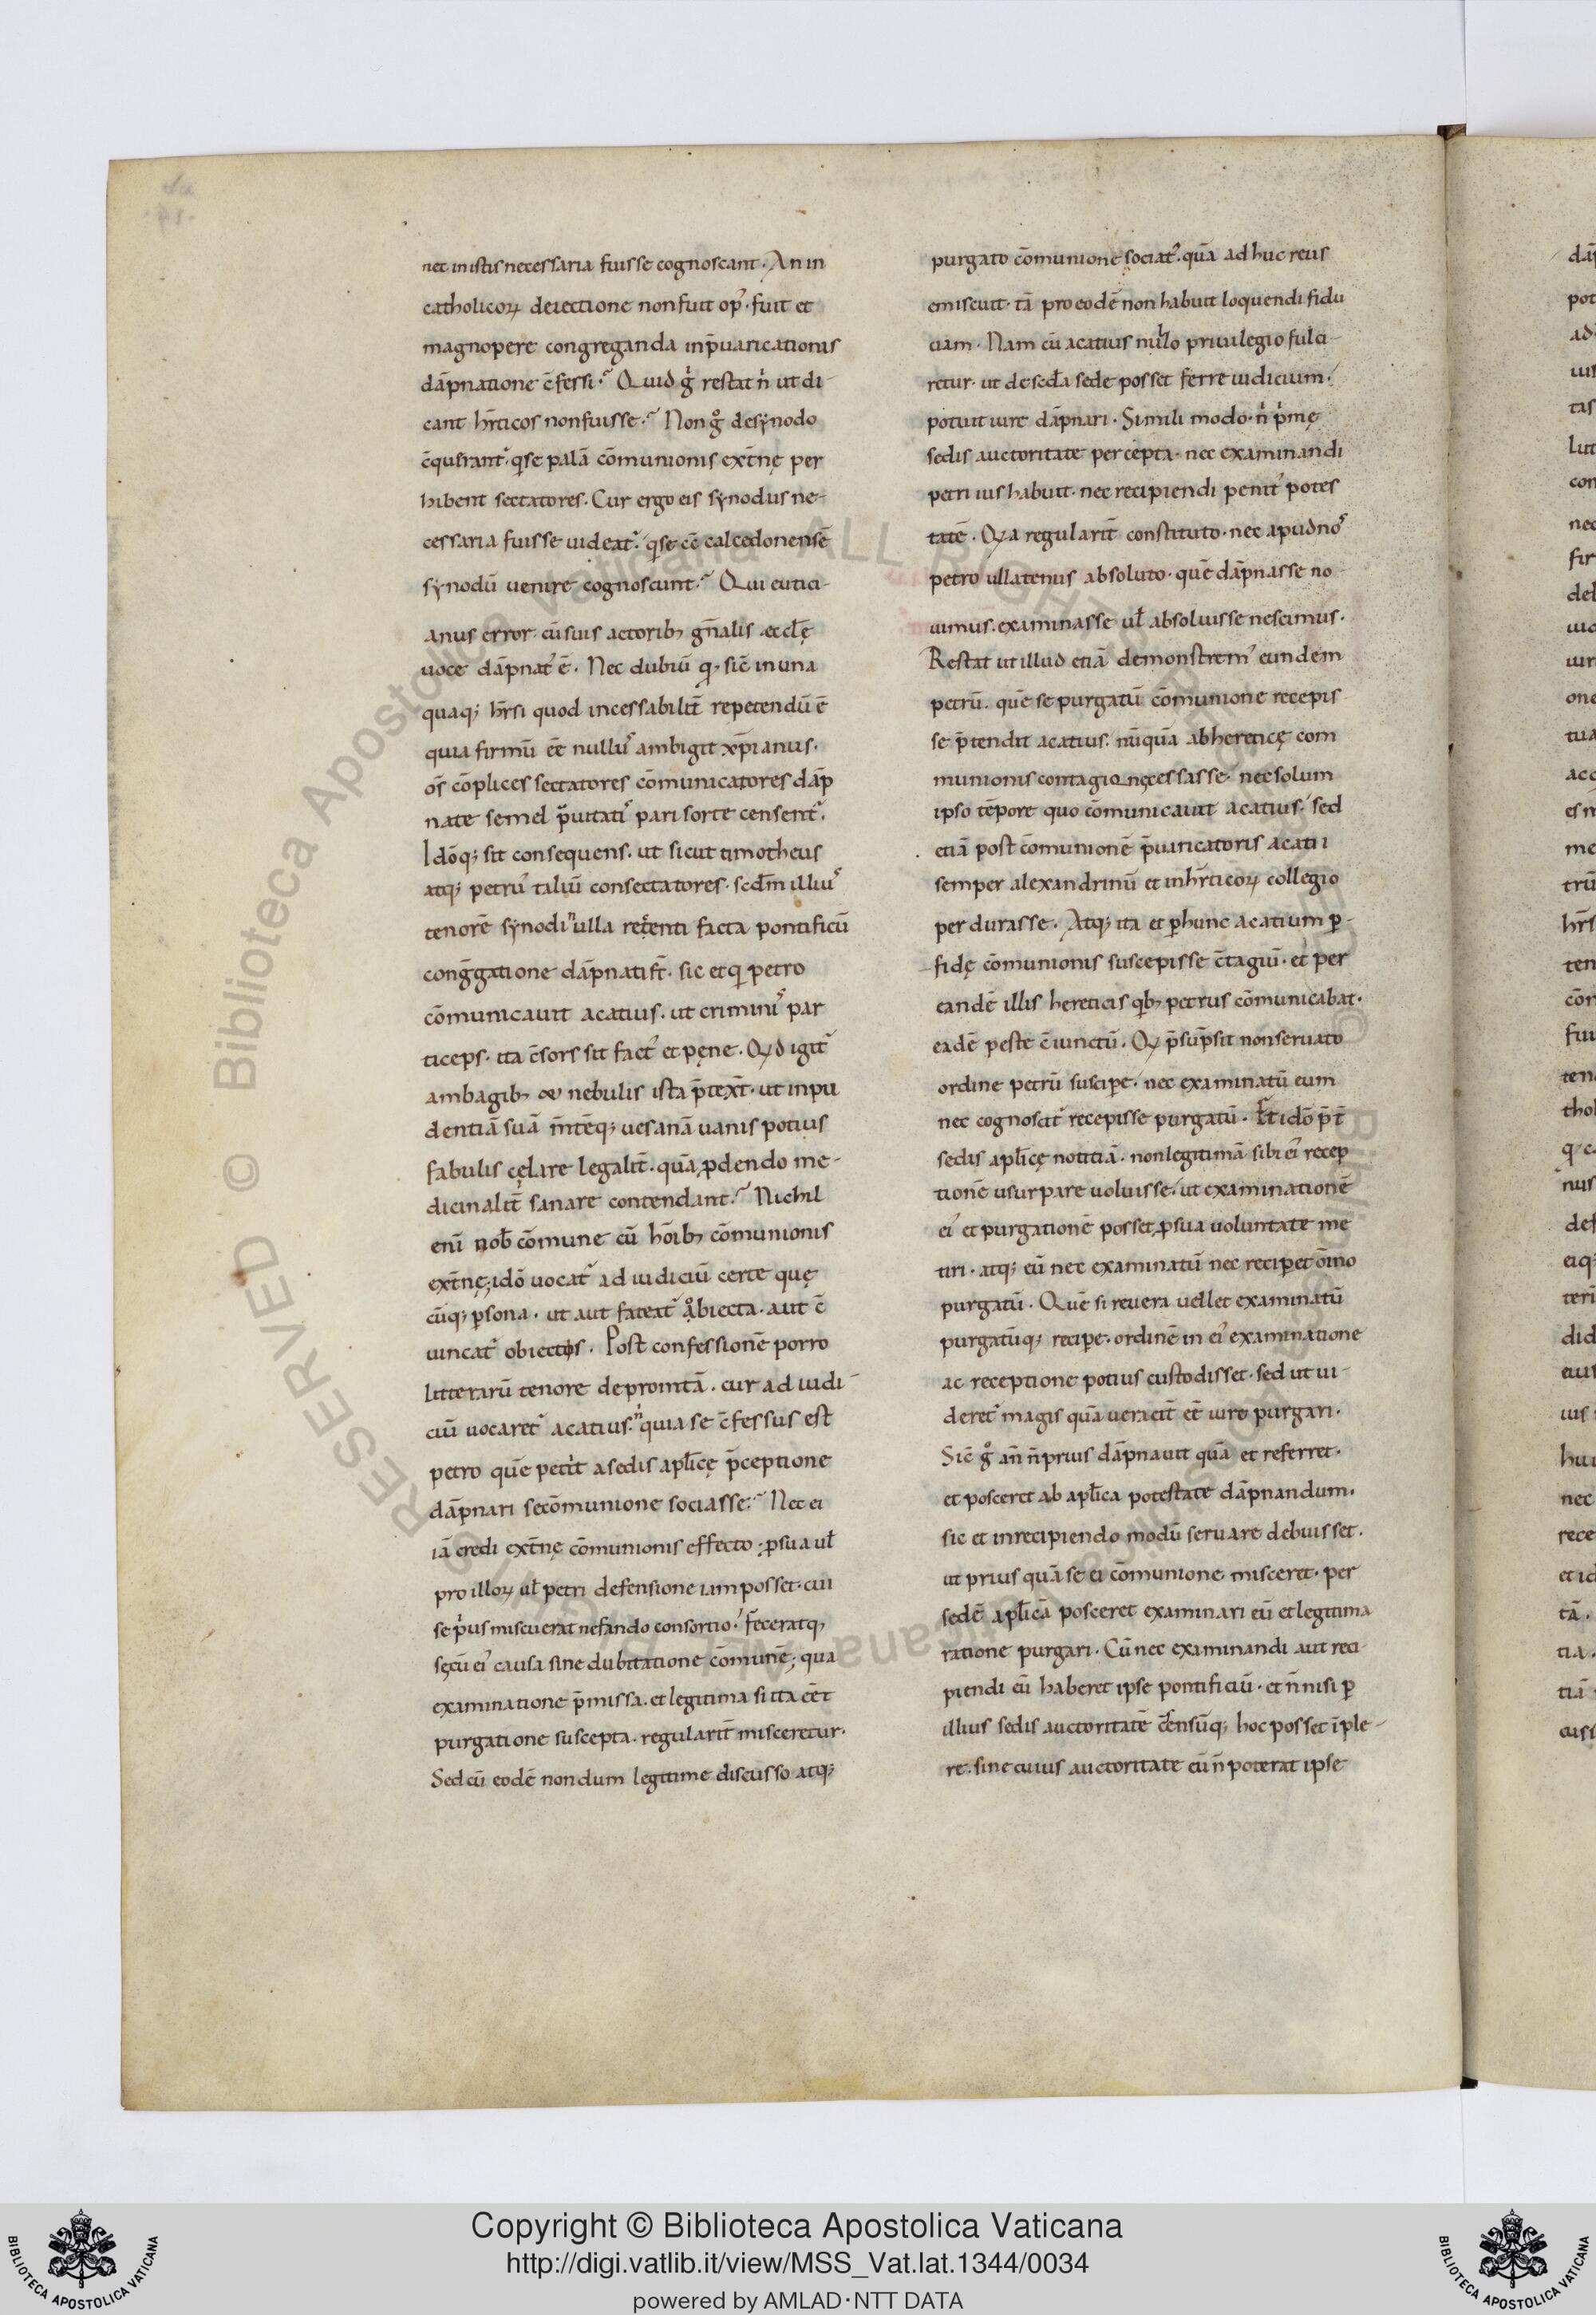 nec in istis necessaria fuisse cognoscant. An in
catholicoꝝ deiectione non fuit op᾽. fuit et
magnopere congreganda in p̄uaricationis
dāpnatione c̄fessi. Quid g͛ restat n͛ ut di-
cant hr̄ticos non fuisse. Non g° de synodo
c̄querant᾽. q̛ se palā cōmunionis ext̄nę per
hibent sectatores. Cur ergo eis synodus ne-
cessaria fuisse uideat᾽. q̛ se cc̄ calcedonensē
synodū uenire cognoscunt. Qui eutici-
anus error. cū suis actorib; gn̄alis eccl̄ę
uoce dāpnat᾽ ē. Nec dubiū q, sic̄ in una
quaq; hr̄si quod incessabilit̄ repetendū ē
quia firmū eē nullu᾽ ambigit xp̄ianus.
os̄ cōplices sectatores cōmunicatores dāp
nate semel p̄uitati᾽ pari sorte censent᾽.
Idōq; sit consequens. ut sicut timotheus
atq; petru᾽ taliū consectatores. scd̄m illiu᾽
tenorē synodi ulla recenti facta pontificū
cong̅gatione dāpnati st̄. sic et q̛ petro
cōmunicauit acatius. ut crimini᾽ par
ticeps. ita c̄sors sit fact᾽ et pęne. Qd igit᾽
ambagib; & nebulis ista p̄text̄. ut inpu
dentiā suā m̄tēq; uesanā uanis potius
fabulis cęlare legalit̄. quā ꝓdendo me-
dicinalit̄ sanare contendant. Nichil
eni᾽ nob̄ cōmune cū hōib; cōmunionis
ext̄nę. idō uocat᾽ ad iudiciū certe quę
cūq; ꝑsona. ut aut fateat᾽ obiecta. aut c̄
uincat᾽ obiectis. Post confessionē porro
litterarū tenore depromtā. cur ad iudi-
ciū uocaret᾽ acatius. quia se c̄fessus est
petro quē petiit a sedis apl̄icę p̄ceptione
dāpnari se cōmunione sociasse. Nec ei
iā credi ext̄nę cōmunionis effecto. ꝓ sua ul̄
pro illoꝝ ul̄ petri defensione iam posset. cui
se p̛us miscuerat nefando consortio. fēceratq;
sęcū ei᾽ causa sine dubitatione cōmunē. qua
examinatione p̄missa. et legitima si ita eēt
purgatione suscepta. regularit̄ misceretur.
Sed cū eodē nondum legitime discusso atq;
purgato cōmunione sociat᾽. quā ad huc reus
emiscuit. tā pro eodē non habuit loquendi fidu
ciam. Nam cū acatius nullo priuilegio fulci-
retur. ut de scd̄a sede posset ferre iudicium.
potuit iure dāpnari. Simili modo. n͛ p̛mę
sedis auctoritate percepta. nec examinandi
petri ius habuit. nec recipiendi penit᾽ potes
tatē. Qa regularit̄ constituto. nec apud no᾽
petro ullatenus absoluto. quē dāpnasse no-
uimus. examinasse ul̄ absoluisse nescimus.
Restat ut illud etiā demonstrem᾽ eundem
petrū. quē se purgatū cōmunione recepis
se p̄tendit acatius. nūquā ab hereticę com
munionis contagio necessasse. nec solum
ipso tēpore quo cōmunicauit acatius. sed
etiā post cōmunionē p̄uaricatoris acatii
semper alexandrinū et in hr̄ticoꝝ collegio
per durasse. Atq; ita et ꝑ hunc acatium ꝑ-
fidę cōmunionis suscepisse c̄tagiū. et per
eandē illis hereticis qb; petrus cōmunicabat.
eadē peste c̄iunctū. Q, p̄sūpsit non seruato
ordine petrū suscipe. nec examinatū eum
nec cognoscit᾽ recepisse purgatū. Et idō p̄t̄
sedis apl̄icę notitiā. non legitimā sibi ei᾽ recep
tionē usurpare uoluisse. ut examinationē
ei᾽ et purgationē posset ꝓ sua voluntate me
tiri. atq; eū nec examinatū nec reciperet ōino
purgatū. Quē si reuera uellet examinatū
purgatūq; recipe. ordinē in ei᾽ examinatione
ac receptione potius custodisset. sed ut ui-
deret᾽ magis quā ueracit̄ eēt iure purgari.
Sic̄ g° an̄ n̄ prius dāpnauit quā et referret.
et posceret ab apl̄ica potestate dāpnandum.
sic et in recipiendo modū seruare debuisset.
ut prius quā se ei cōmunione misceret. per
sedē apl̄icā posceret examinari eū et legitima
ratione purgari. Cū nec examinandi aut reci-
piendi eū haberet ipse pontificiū. et n̄ nisi ꝑ
illius sedis auctoritatē c̄sensūq; hoc posset īple-
re. sine cuius auctoritate eū n̄ poterat ipse
Copyright © Biblioteca Apostolica Vaticana
http://digi.vatlib.it/view/MSS_Vat.lat.1344/0034
powered by AMLAD·NTT DATA